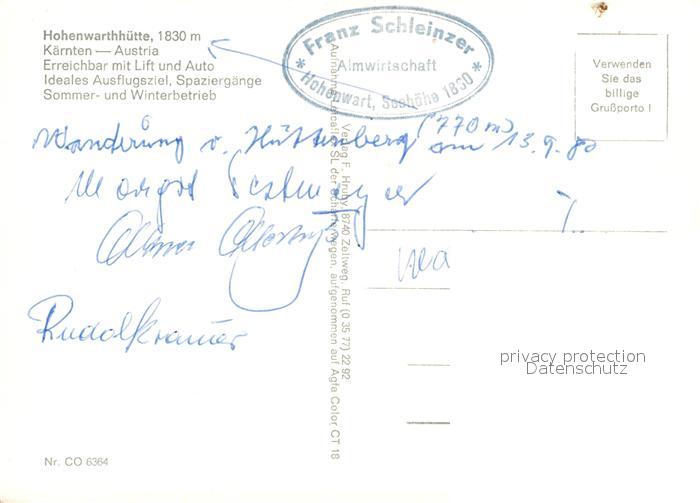 Hohenwarthhütte, 1830 m
Kärnten — Austria
Erreichbar mit Lift und Auto
Ideales Ausflugsziel, Spaziergänge
Sommer- und Winterbetrieb
Franz Schleinzer
Almwirtschaft
* Hohenwart, Seehöhe 1830 *
Verwenden
Sie das
billige
Grußporto !
Wanderung v. Hüttenberg (770 m)
am 13. 9. 80
Margot
Rudolf Kramer
Verlag F. Hruby, 8740 Zeltweg, Ruf (0 35 77) 22 92
aufgenommen auf Agfa Color CT 18
privacy protection
Datenschutz
Nr. CO 6364